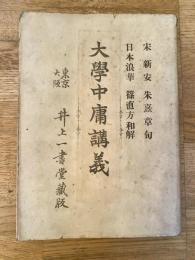 宋 新安 朱熹章句
日本浪華 篠直方和解
大學中庸講義
東京
大阪
井上一書堂藏版